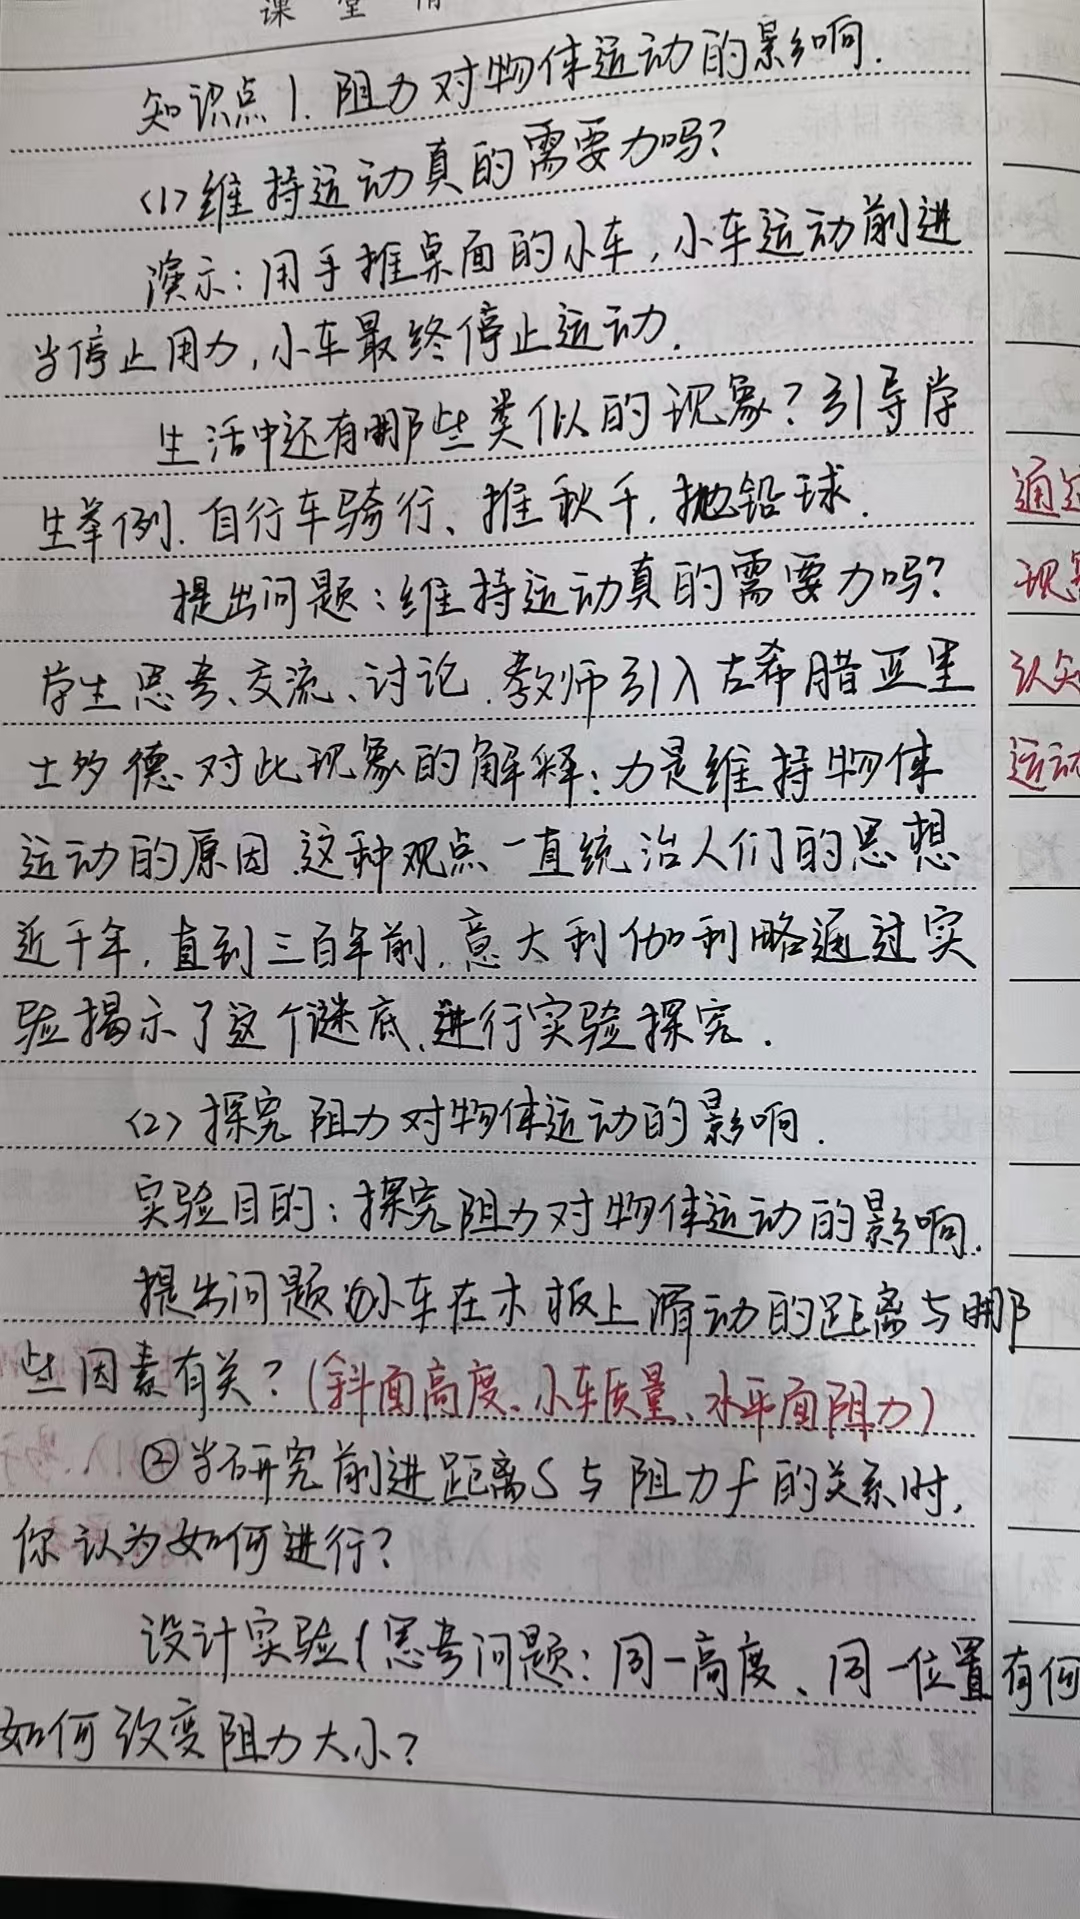 课 堂
知识点1.阻力对物体运动的影响.
(1)维持运动真的需要力吗?
演示:用手推桌面的小车,小车运动前进
当停止用力,小车最终停止运动.
生活中还有哪些类似的现象?引导学
生举例.自行车骑行、推秋千,抛铅球.
提出问题:维持运动真的需要力吗?
学生思考、交流、讨论.教师引入古希腊亚里
士多德对此现象的解释:力是维持物体
运动的原因.这种观点一直统治人们的思想
近千年,直到三百年前,意大利伽利略通过实
验揭示了这个谜底,进行实验探究.
(2)探究阻力对物体运动的影响.
实验目的:探究阻力对物体运动的影响.
提出问题①小车在木板上滑动的距离与哪
些因素有关?(斜面高度、小车质量、水平面阻力)
②当研究前进距离S与阻力f的关系时,
你认为如何进行?
设计实验(思考问题:同一高度、同一位置有何
如何改变阻力大小?
通过
现象
认知
运动